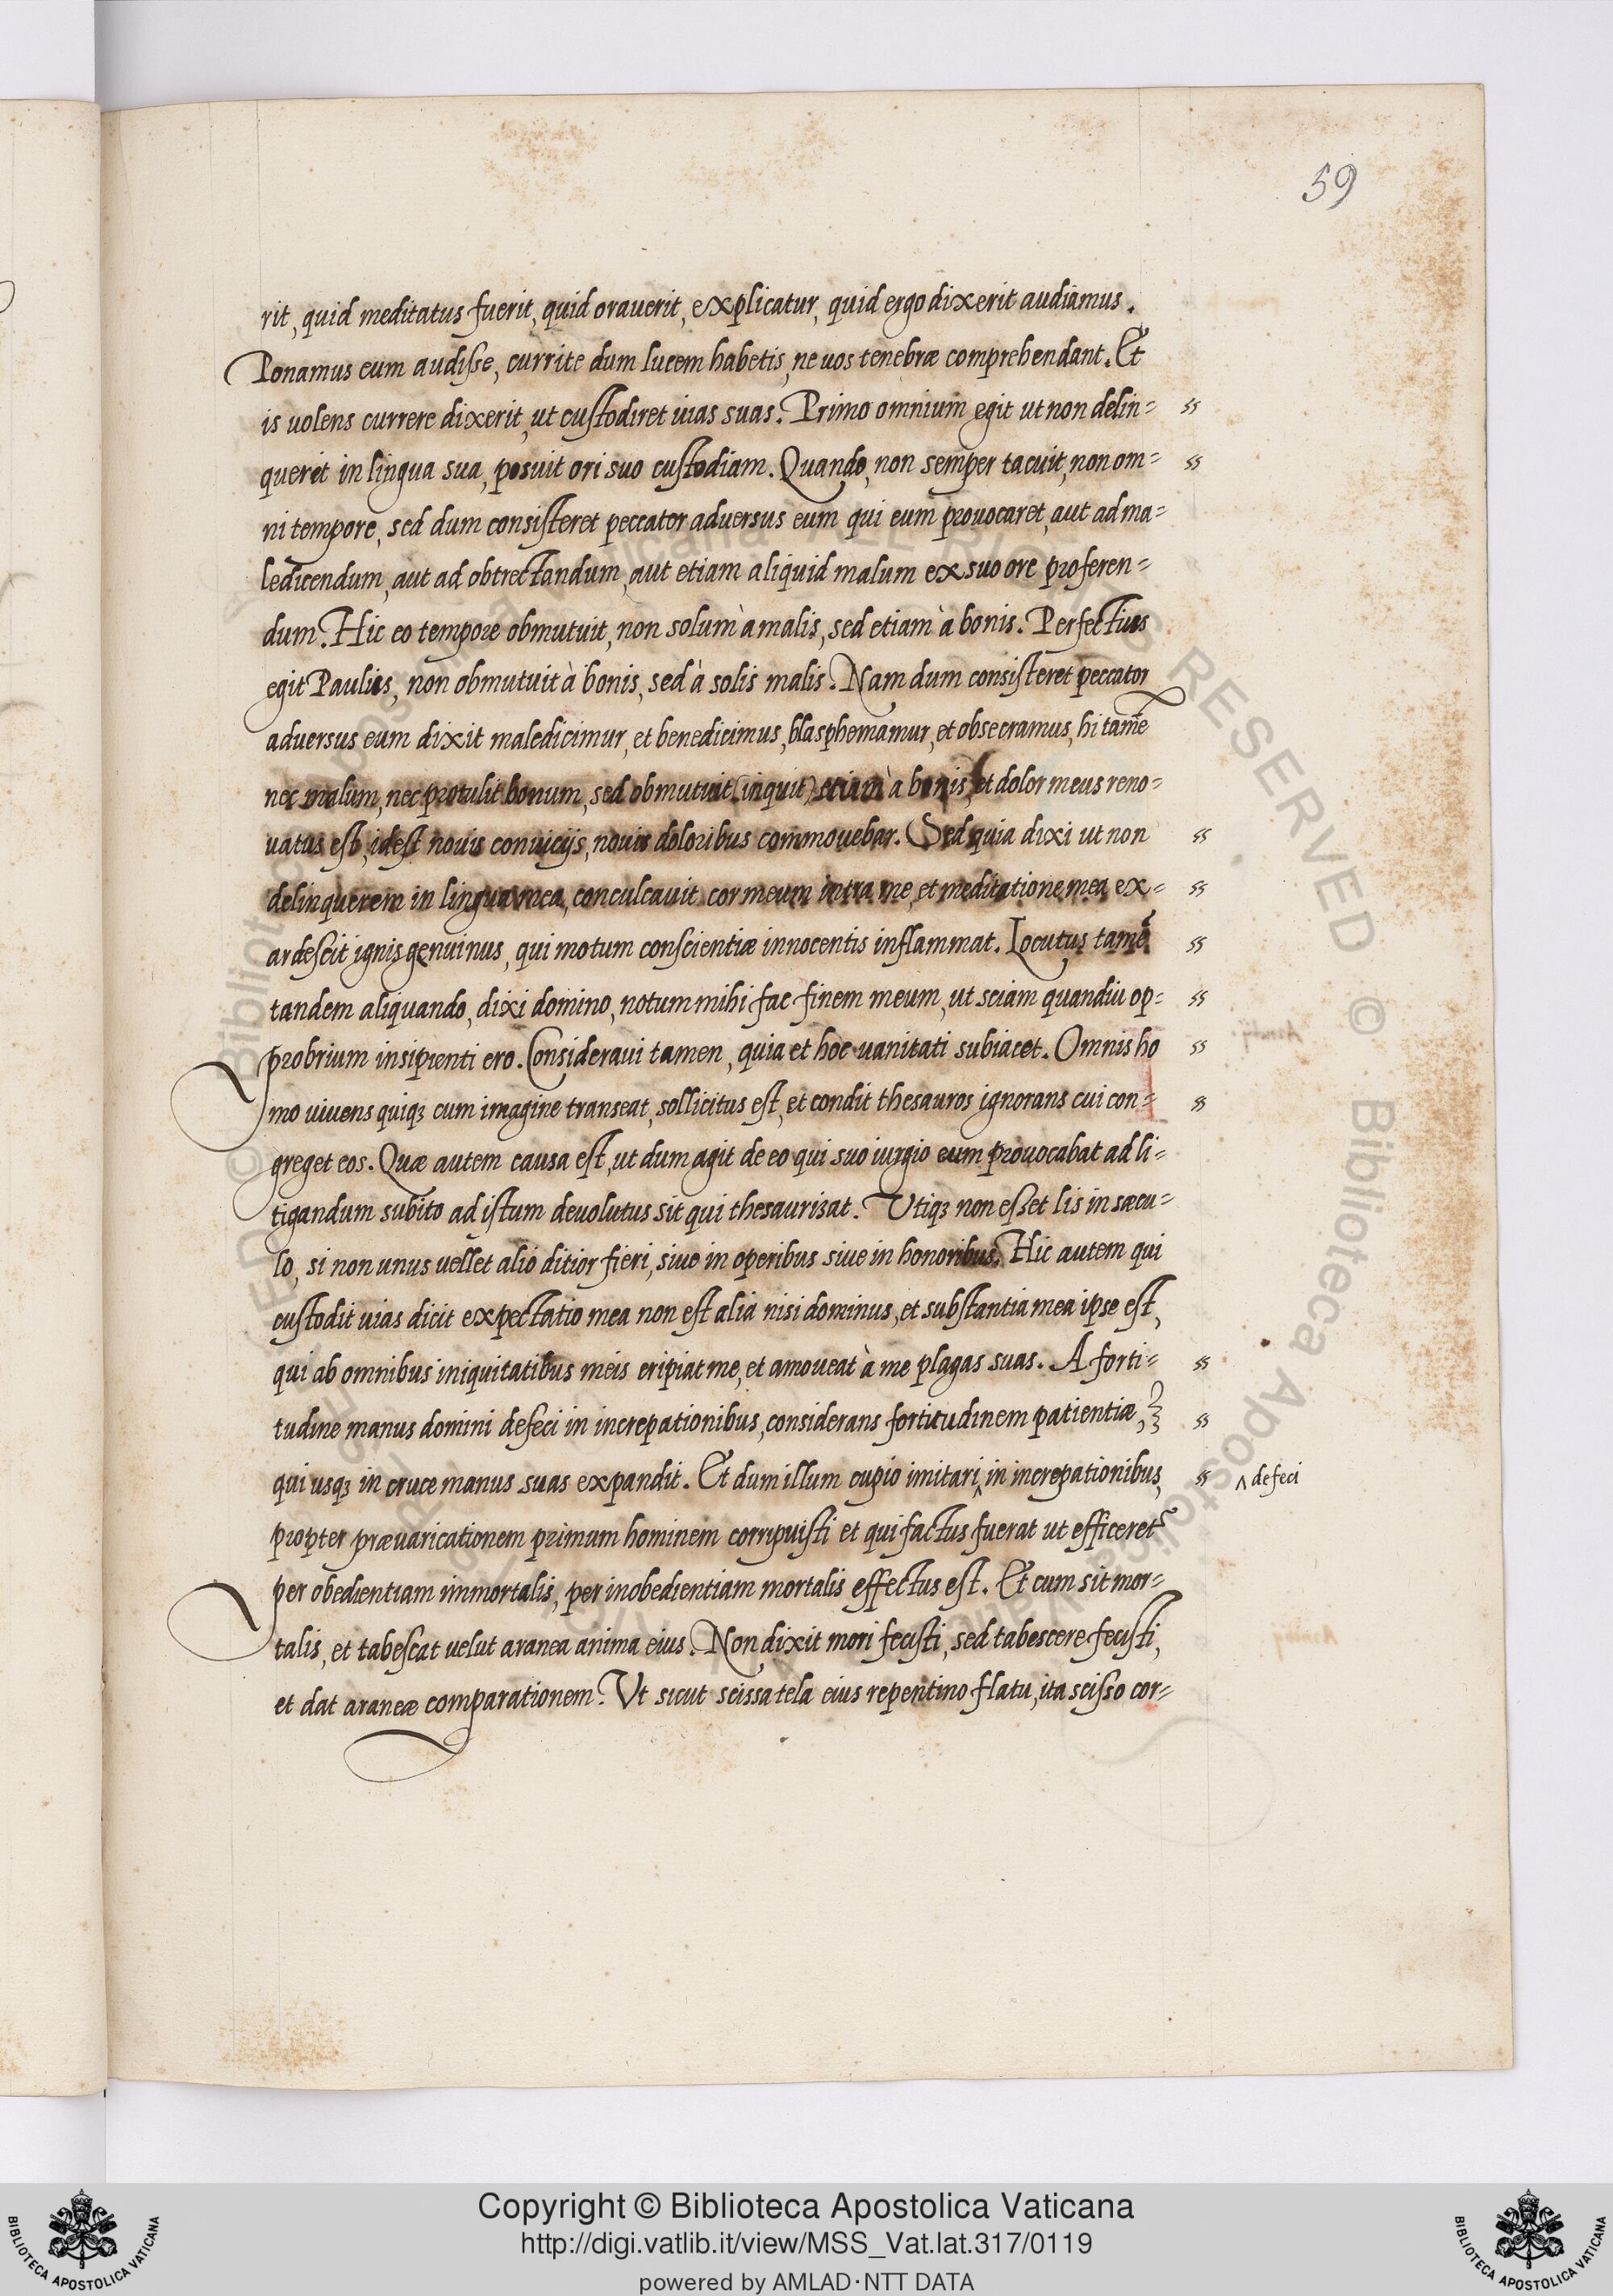 59
rit, quid meditatus fuerit, quid orauerit, explicatur, quid ergo dixerit audiamus.
Ponamus eum audisse, currite dum lucem habetis, ne uos tenebræ comprehendant. Et
is uolens currere dixerit, ut custodiret uias suas. Primo omnium egit ut non delin= ss
queret in lingua sua, posuit ori suo custodiam. Quando, non semper tacuit, non om= ss
ni tempore, sed dum consisteret peccator aduersus eum qui eum prouocaret, aut ad ma=
ledicendum, aut ad obtrectandum, aut etiam aliquid malum ex suo ore proferen=
dum. Hic eo tempore obmutuit, non solum à malis, sed etiam à bonis. Perfectius
egit Paulus, non obmutuit à bonis, sed à solis malis. Nam dum consisteret peccator
aduersus eum dixit maledicimur, et benedicimus, blasphemamur, et obsecramus, hi tamē
nec malum, nec protulit bonum, sed obmutuit (inquit) etiam à bonis, et dolor meus reno=
uatus est, idest nouis conuicijs, nouis doloribus commouebar. Sed quia dixi ut non ss
delinquerem in lingua mea, conculcauit cor meum intra me, et meditatione mea ex= ss
ardescit ignis genuinus, qui motum conscientiæ innocentis inflammat. Locutus tamē ss
tandem aliquando, dixi domino, notum mihi fac finem meum, ut sciam quandiu op= ss
probrium insipienti ero. Consideraui tamen, quia et hoc uanitati subiacet. Omnis ho ss
mo uiuens quiqꝫ cum imagine transeat, sollicitus est, et condit thesauros ignorans cui con= ss
greget eos. Quæ autem causa est, ut dum agit de eo qui suo iurgio eum prouocabat ad li=
tigandum subito ad istum deuolutus sit qui thesaurizat. Utiqꝫ non esset lis in sæcu=
lo, si non unus uellet alio ditior fieri, siue in operibus siue in honoribus. Hic autem qui
custodit uias dicit expectatio mea non est alia nisi dominus, et substantia mea ipse est,
qui ab omnibus iniquitatibus meis eripiat me, et amoueat à me plagas suas. A forti= ss
tudine manus domini defeci in increpationibus, considerans fortitudinem patientiæ, ss
qui usqꝫ in cruce manus suas expandit. Et dum illum cupio imitari ‸ in increpationibus, ss ‸ defeci
propter præuaricationem primum hominem corripuisti et qui factus fuerat ut efficeret᷑
per obedientiam immortalis, per inobedientiam mortalis effectus est. Et cum sit mor=
talis, et tabescat uelut aranea anima eius. Non dixit mori fecisti, sed tabescere fecisti,
et dat araneæ comparationem. Vt sicut scissa tela eius repentino flatu, ita scisso cor=
Copyright © Biblioteca Apostolica Vaticana
http://digi.vatlib.it/view/MSS_Vat.lat.317/0119
powered by AMLAD·NTT DATA
BIBLIOTECA APOSTOLICA VATICANA
BIBLIOTECA APOSTOLICA VATICANA